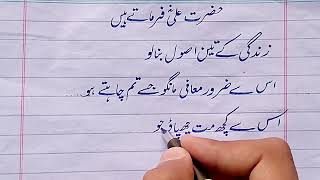 حضرت علیؓ فرماتے ہیں
زندگی کے تین اصول بنالو
اس سے ضرور معافی مانگو جسے تم چاہتے ہو۔۔
اس سے کچھ مت چھپاؤ جو